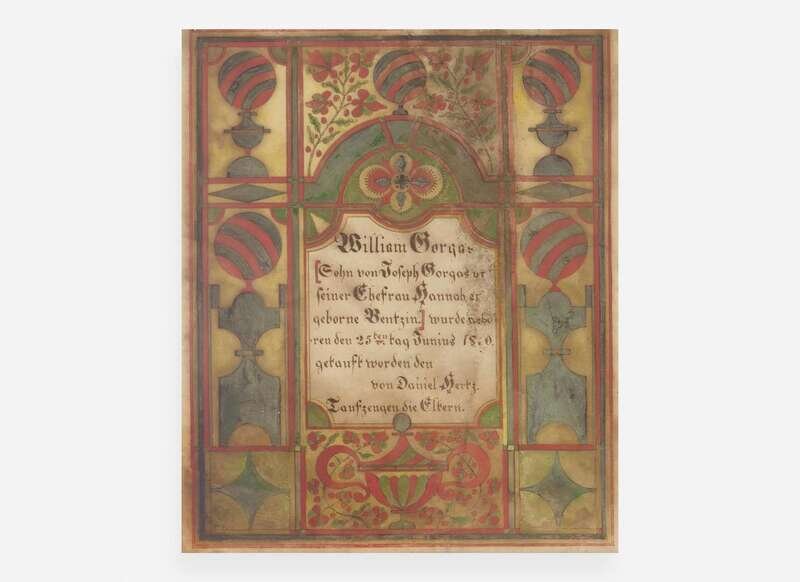 William Gorgas
[Sohn von Joseph Gorgas
seiner Ehefrau Hannah
geborne Bentzin.] wurde
ren den 25ten tag Junius
getauft worden den
von Daniel Hertz.
Taufzeugen die Eltern.